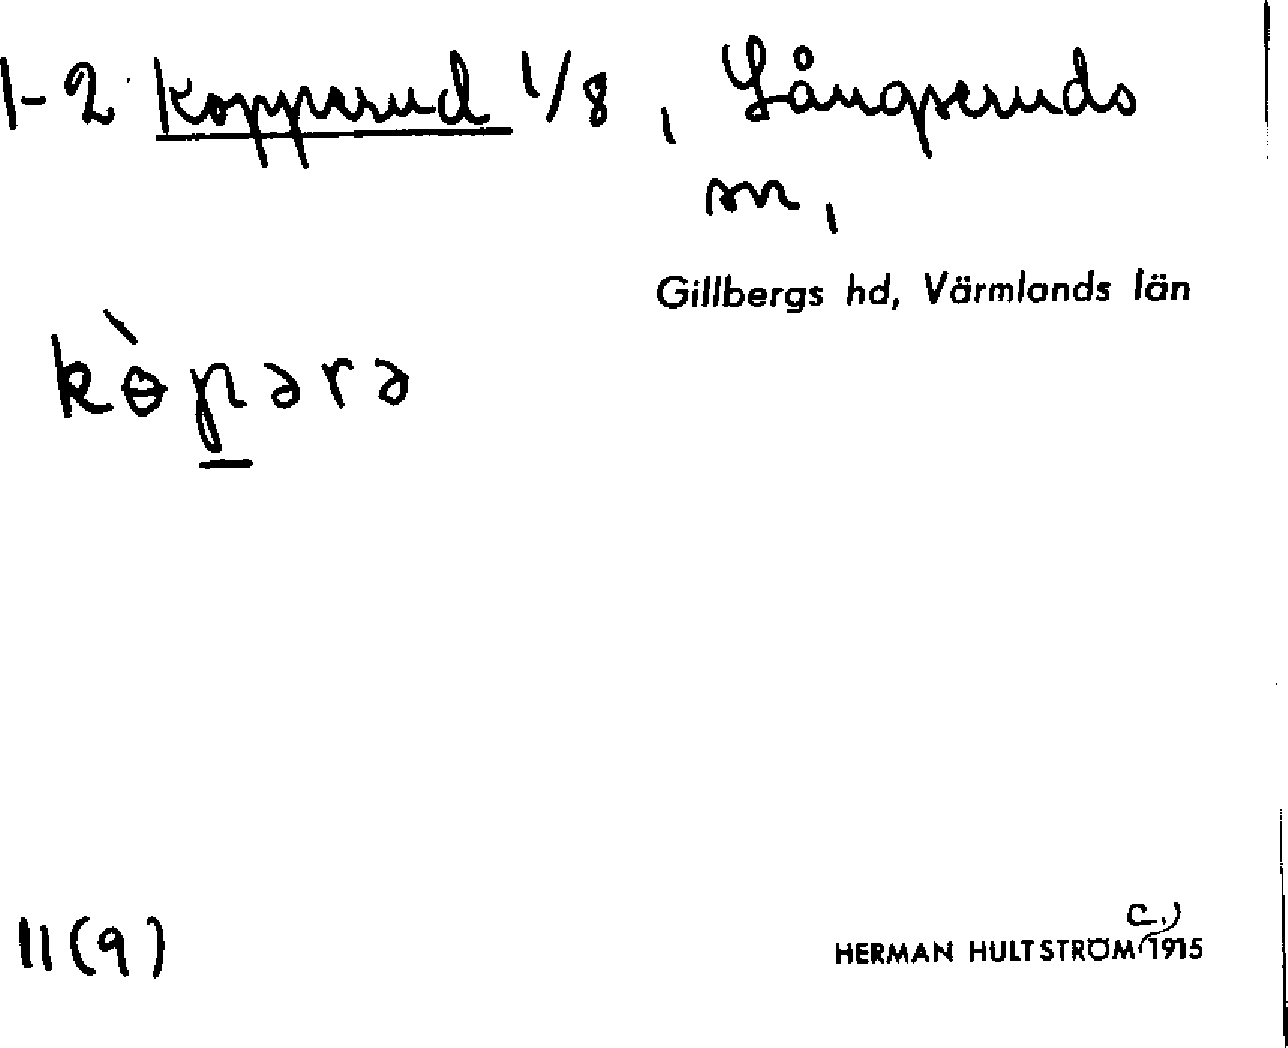 1-2 Kopparud 1/8, Långseruds
sn,
Gillbergs hd, Värmlands län
kɵ̀pərə
11(9)
HERMAN HULTSTRÖM (c.) 1915